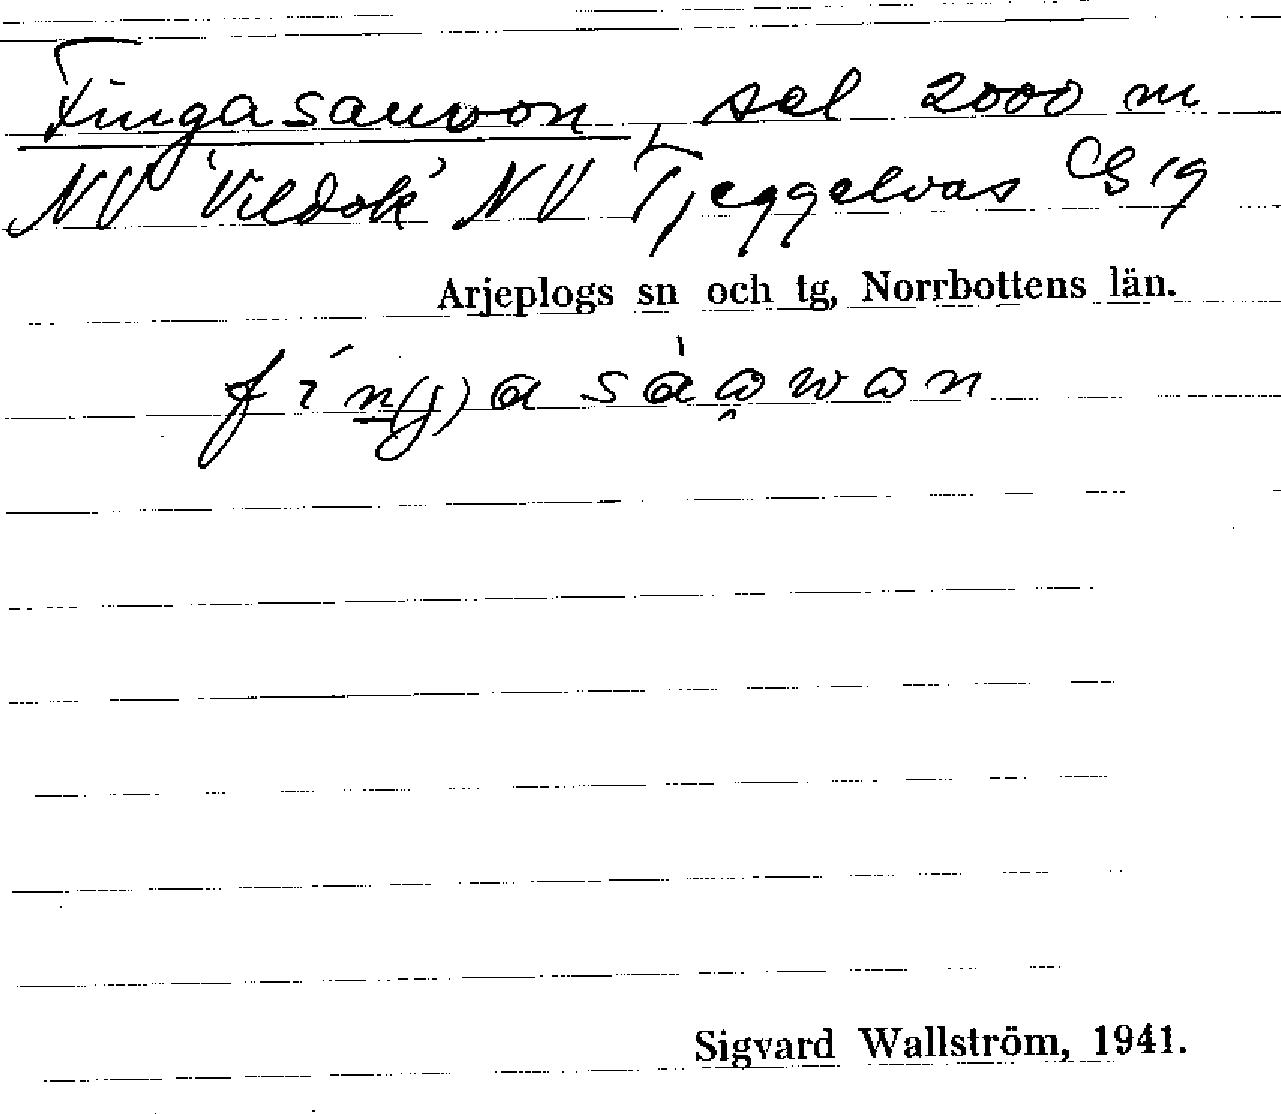 Fingasauvon, sel 2000 m
NV 'Vildok' NV Tjeggelvas C819
Arjeplogs sn och tg, Norrbottens län.
fín(g)a sàowon
Sigvard Wallström, 1941.